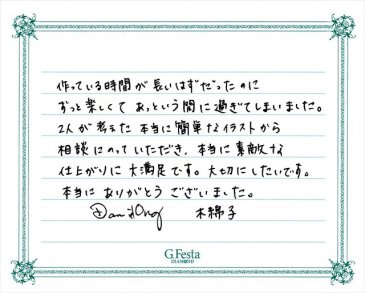 作っている時間が長いはずだったのに
ずっと楽しくてあっという間に過ぎてしまいました。
2人が考えた本当に簡単なイラストから
相談にのっていただき、本当に素敵な
仕上がりに大満足です。大切にしたいです。
本当にありがとうございました。
木綿子
G.Festa
DIAMOND